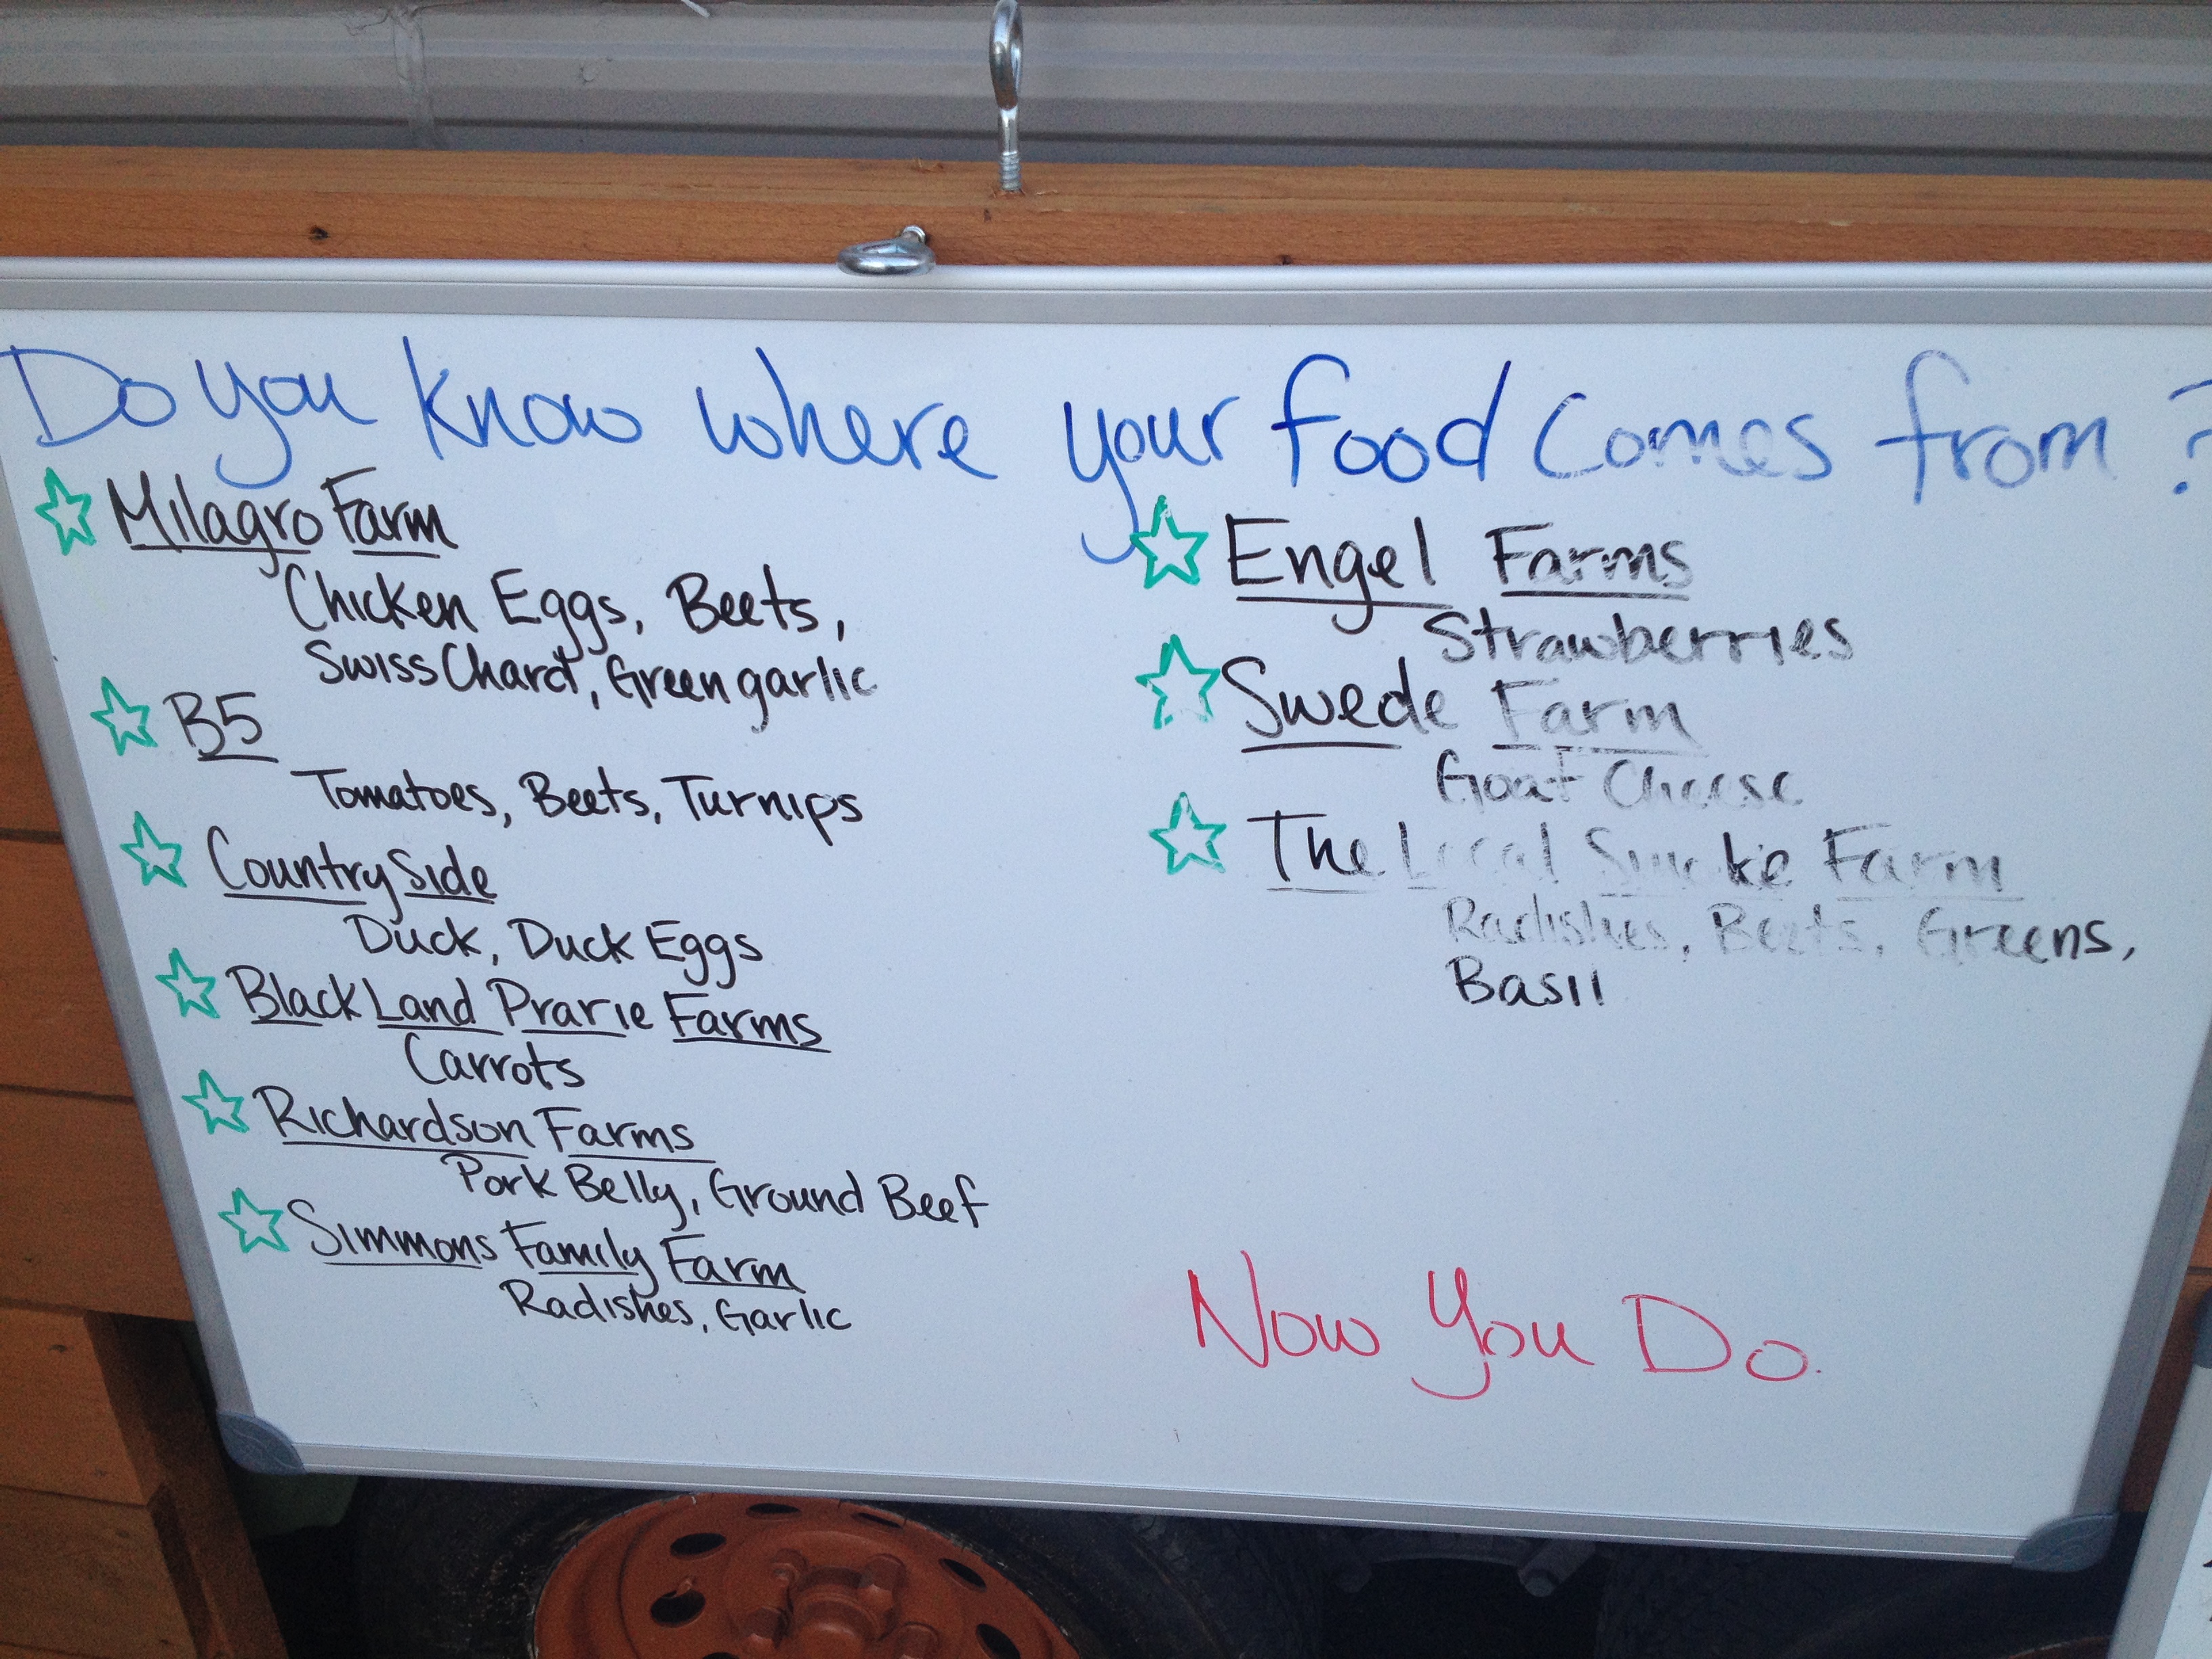 Do you know where your food comes from ?
Milagro Farm
Chicken Eggs, Beets,
Swiss Chard, Green garlic
B5
Tomatoes, Beets, Turnips
Country Side
Duck, Duck Eggs
Black Land Prarie Farms
Carrots
Richardson Farms
Pork Belly, Ground Beef
Simmons Family Farm
Radishes, Garlic
Engel Farms
Strawberries
Swede Farm
Goat Cheese
The Local Smoke Farm
Radishes, Beets, Greens,
Basil
Now You Do.